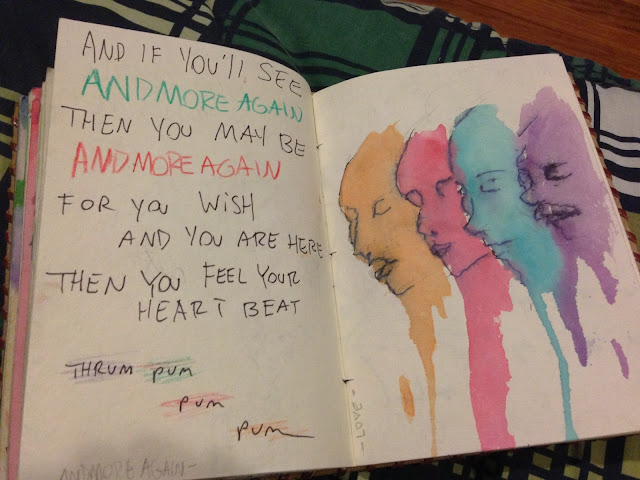 AND IF YOU'LL SEE
ANDMORE AGAIN
THEN YOU MAY BE
ANDMORE AGAIN
FOR YOU WISH
AND YOU ARE HERE
THEN YOU FEEL YOUR
HEART BEAT
THRUM PUM
PUM
PUM
ANDMORE AGAIN -
- LOVE -